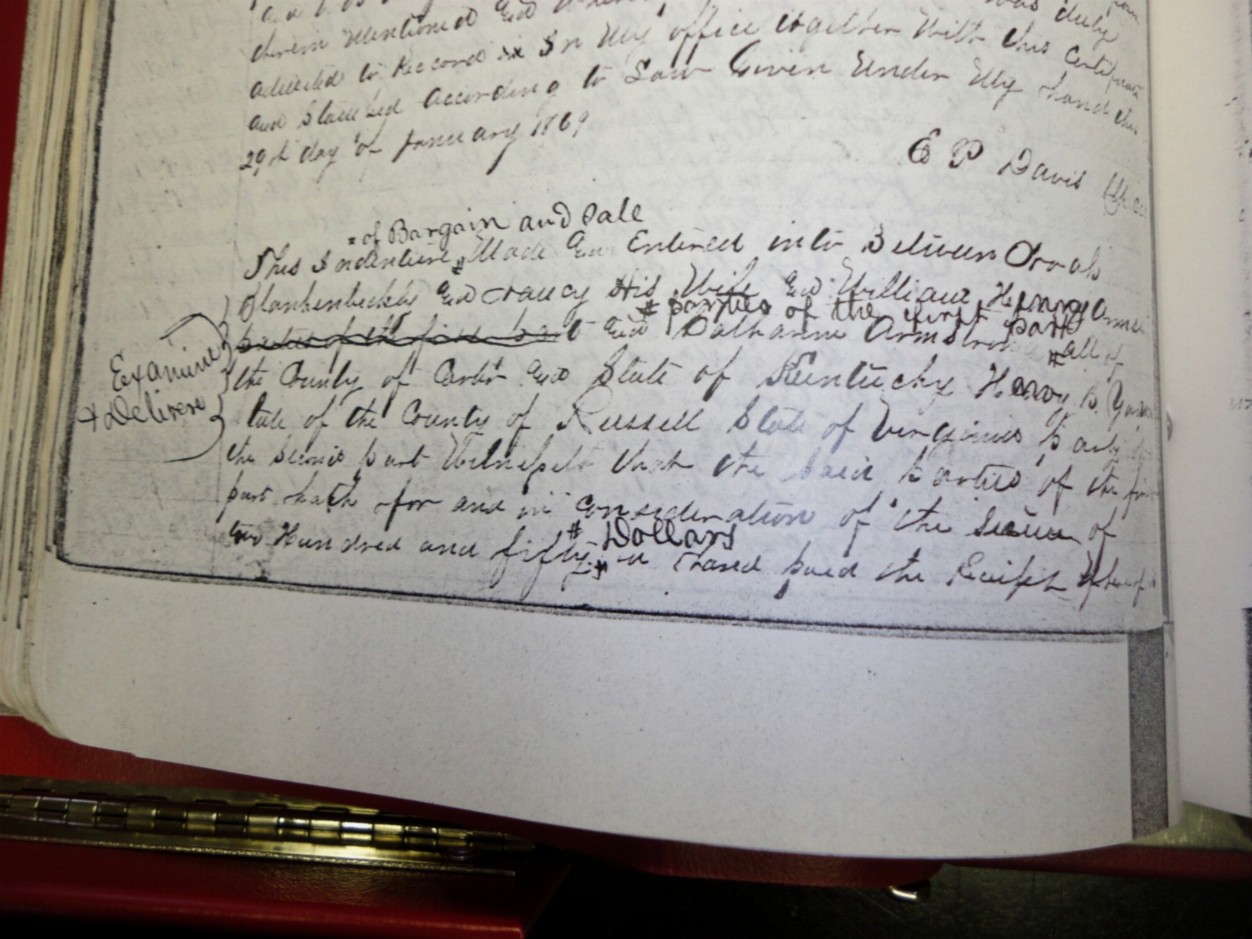 was duly
therein mentioned and
admitted to Record in my office together With this Certificate
and Stamped according to Law Given Under My hand this
29th day of January 1869
E P Davis
of Bargain and Sale
This Indenture Made and Entered into Between
Blankenbeckly and Nancy His Wife and William Henry
# parties of the first part
and Catharine Armstrong # all of
Examine
+ Delivere
the County of Carter and State of Kentucky Henry B
of the County of Russell State of Virginia party
the Second part Witnesseth that the said parties of the
part hath for and in consideration of the Sum of
# Dollars
two Hundred and fifty # in hand paid the Receipt